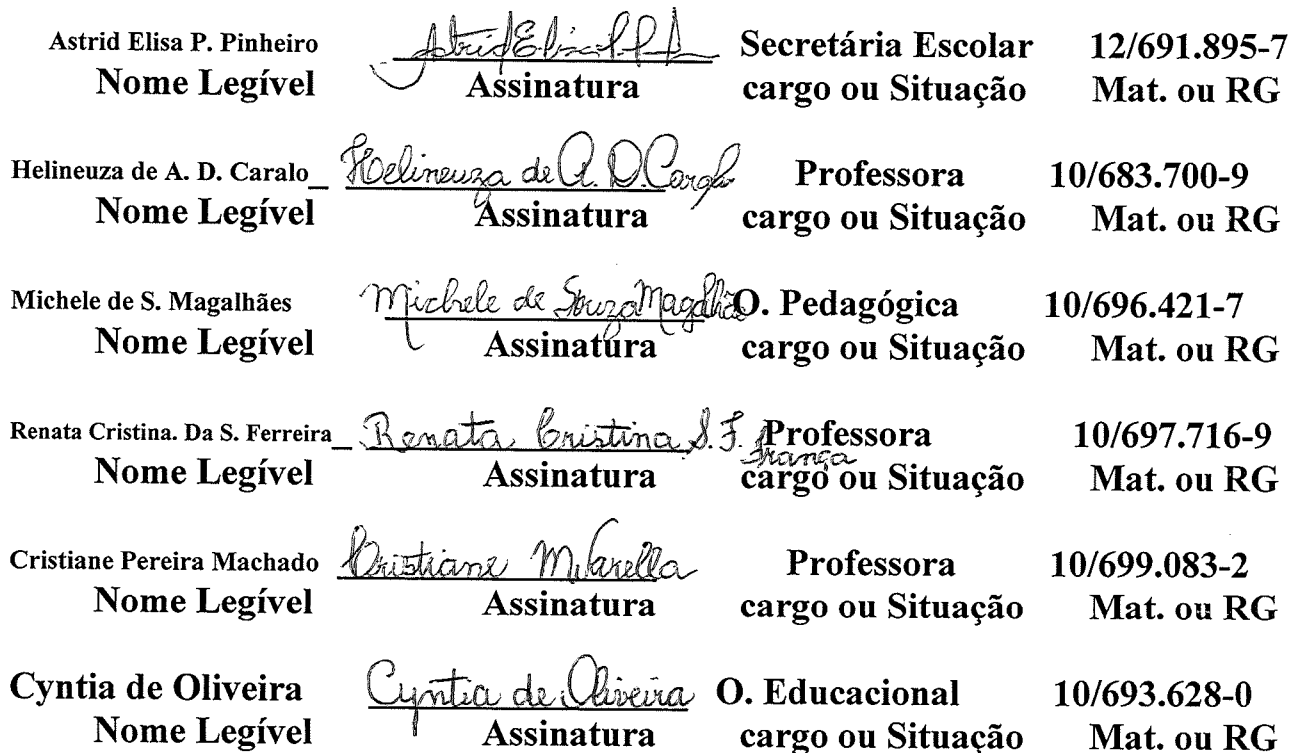 Astrid Elisa P. Pinheiro Astrid Elisa P. P. Secretária Escolar 12/691.895-7
Nome Legível Assinatura cargo ou Situação Mat. ou RG
Helineuza de A. D. Caralo_ Helineuza de A. D. Caralo Professora 10/683.700-9
Nome Legível Assinatura cargo ou Situação Mat. ou RG
Michele de S. Magalhães Michele de Souza Magalhães O. Pedagógica 10/696.421-7
Nome Legível Assinatura cargo ou Situação Mat. ou RG
Renata Cristina. Da S. Ferreira_ Renata Cristina S. F. França Professora 10/697.716-9
Nome Legível Assinatura cargo ou Situação Mat. ou RG
Cristiane Pereira Machado Cristiane M. Varella Professora 10/699.083-2
Nome Legível Assinatura cargo ou Situação Mat. ou RG
Cyntia de Oliveira Cyntia de Oliveira O. Educacional 10/693.628-0
Nome Legível Assinatura cargo ou Situação Mat. ou RG